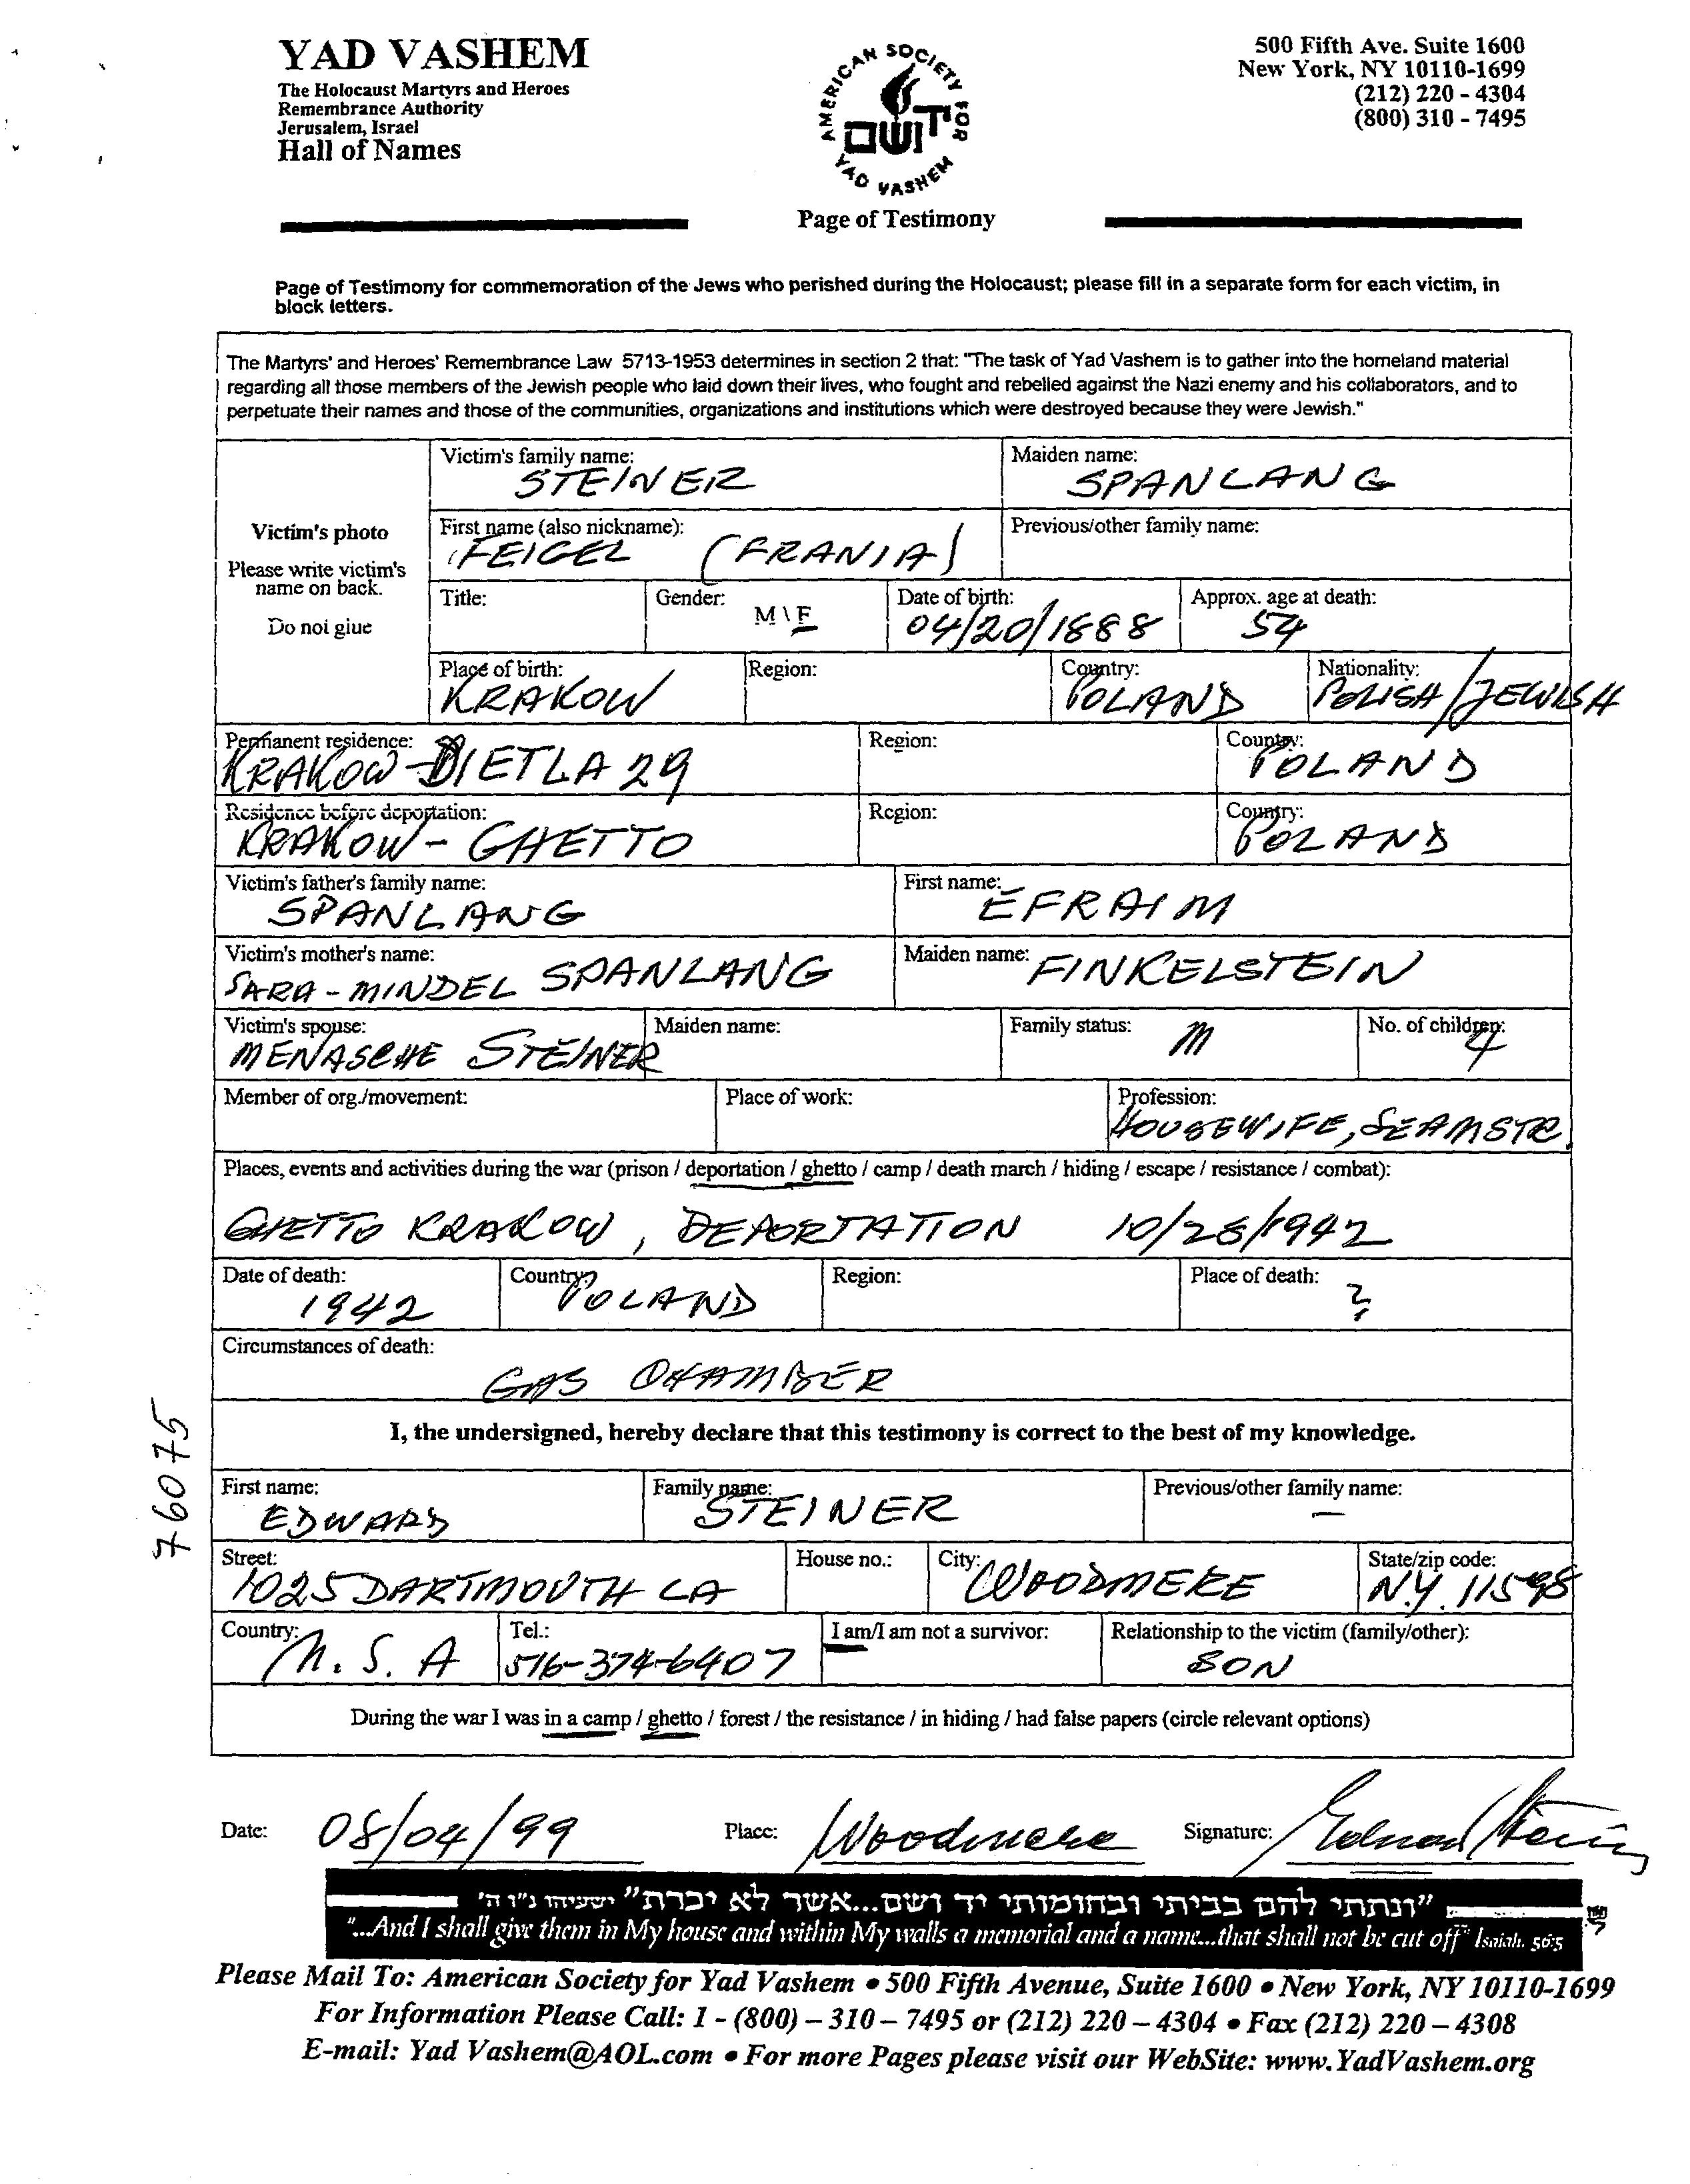 YAD VASHEM
The Holocaust Martyrs and Heroes
Remembrance Authority
Jerusalem, Israel
Hall of Names
AMERICAN SOCIETY FOR
יד ושם
YAD VASHEM
Page of Testimony
500 Fifth Ave. Suite 1600
New York, NY 10110-1699
(212) 220 - 4304
(800) 310 - 7495
Page of Testimony for commemoration of the Jews who perished during the Holocaust; please fill in a separate form for each victim, in
block letters.
The Martyrs' and Heroes' Remembrance Law 5713-1953 determines in section 2 that: "The task of Yad Vashem is to gather into the homeland material
regarding all those members of the Jewish people who laid down their lives, who fought and rebelled against the Nazi enemy and his collaborators, and to
perpetuate their names and those of the communities, organizations and institutions which were destroyed because they were Jewish."
Victim's photo
Please write victim's
name on back.
Do not glue
Victim's family name:
STEINER
Maiden name:
SPANLANG
First name (also nickname):
FEIGEL (FRANIA)
Previous/other family name:
Title:
Gender: M\F
Date of birth:
04/20/1888
Approx. age at death:
54
Place of birth:
KRAKOW
Region:
Country:
POLAND
Nationality:
POLISH/JEWISH
Permanent residence:
KRAKOW-DIETLA 29
Region:
Country:
POLAND
Residence before deportation:
KRAKOW - GHETTO
Region:
Country:
POLAND
Victim's father's family name:
SPANLANG
First name:
EFRAIM
Victim's mother's name:
SARA-MINDEL SPANLANG
Maiden name:
FINKELSTEIN
Victim's spouse:
MENASCHE STEINER
Maiden name:
Family status:
M
No. of children:
4
Member of org./movement:
Place of work:
Profession:
HOUSEWIFE, SEAMSTR.
Places, events and activities during the war (prison / deportation / ghetto / camp / death march / hiding / escape / resistance / combat):
GHETTO KRAKOW, DEPORTATION 10/28/1942
Date of death:
1942
Country:
POLAND
Region:
Place of death:
?
Circumstances of death:
GAS CHAMBER
I, the undersigned, hereby declare that this testimony is correct to the best of my knowledge.
76075
First name:
EDWARD
Family name:
STEINER
Previous/other family name:
—
Street:
1025 DARTMOUTH LA
House no.:
City:
WOODMERE
State/zip code:
N.Y. 11598
Country:
U.S.A
Tel.:
516-374-6407
I am/I am not a survivor:
Relationship to the victim (family/other):
SON
During the war I was in a camp / ghetto / forest / the resistance / in hiding / had false papers (circle relevant options)
Date: 08/04/99 Place: Woodmere Signature: Edward Steiner
"ונתתי להם בביתי ובחומותי יד ושם...אשר לא יכרת" ישעיהו נ"ו ה'
"...And I shall give them in My house and within My walls a memorial and a name...that shall not be cut off" Isaiah. 56:5
Please Mail To: American Society for Yad Vashem • 500 Fifth Avenue, Suite 1600 • New York, NY 10110-1699
For Information Please Call: 1 - (800) – 310 – 7495 or (212) 220 – 4304 • Fax (212) 220 – 4308
E-mail: Yad Vashem@AOL.com • For more Pages please visit our WebSite: www.YadVashem.org